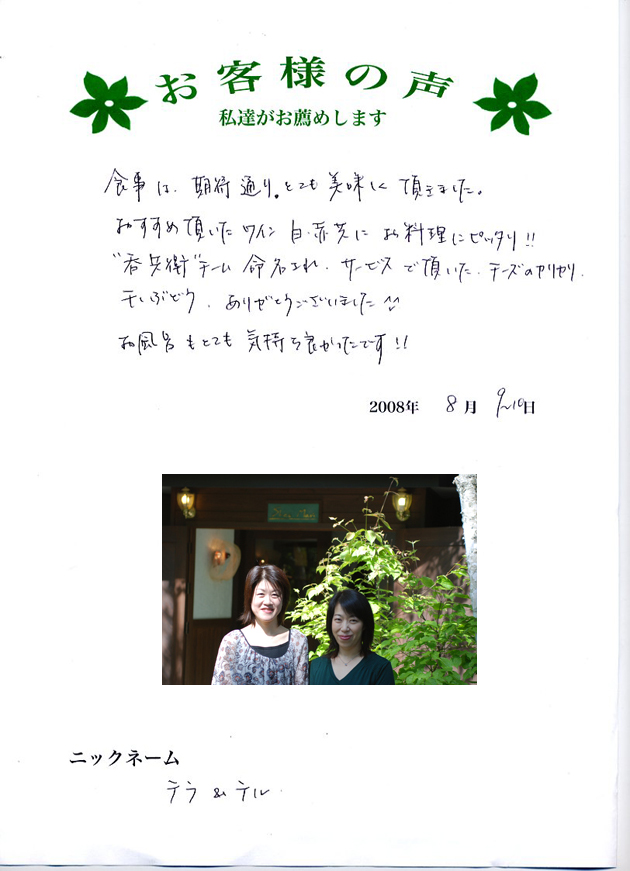 お客様の声
私達がお薦めします
食事は、期待通り。とても美味しく頂きました。
おすすめ頂いたワイン白・赤共にお料理にピッタリ!!
"呑兵衛"チーム命名され、サービスで頂いた、チーズのカリカリ、
干しぶどう、ありがとうございました^^
お風呂もとても気持ち良かったです!!
2008年 8月 9~10日
ニックネーム
テラ & テル